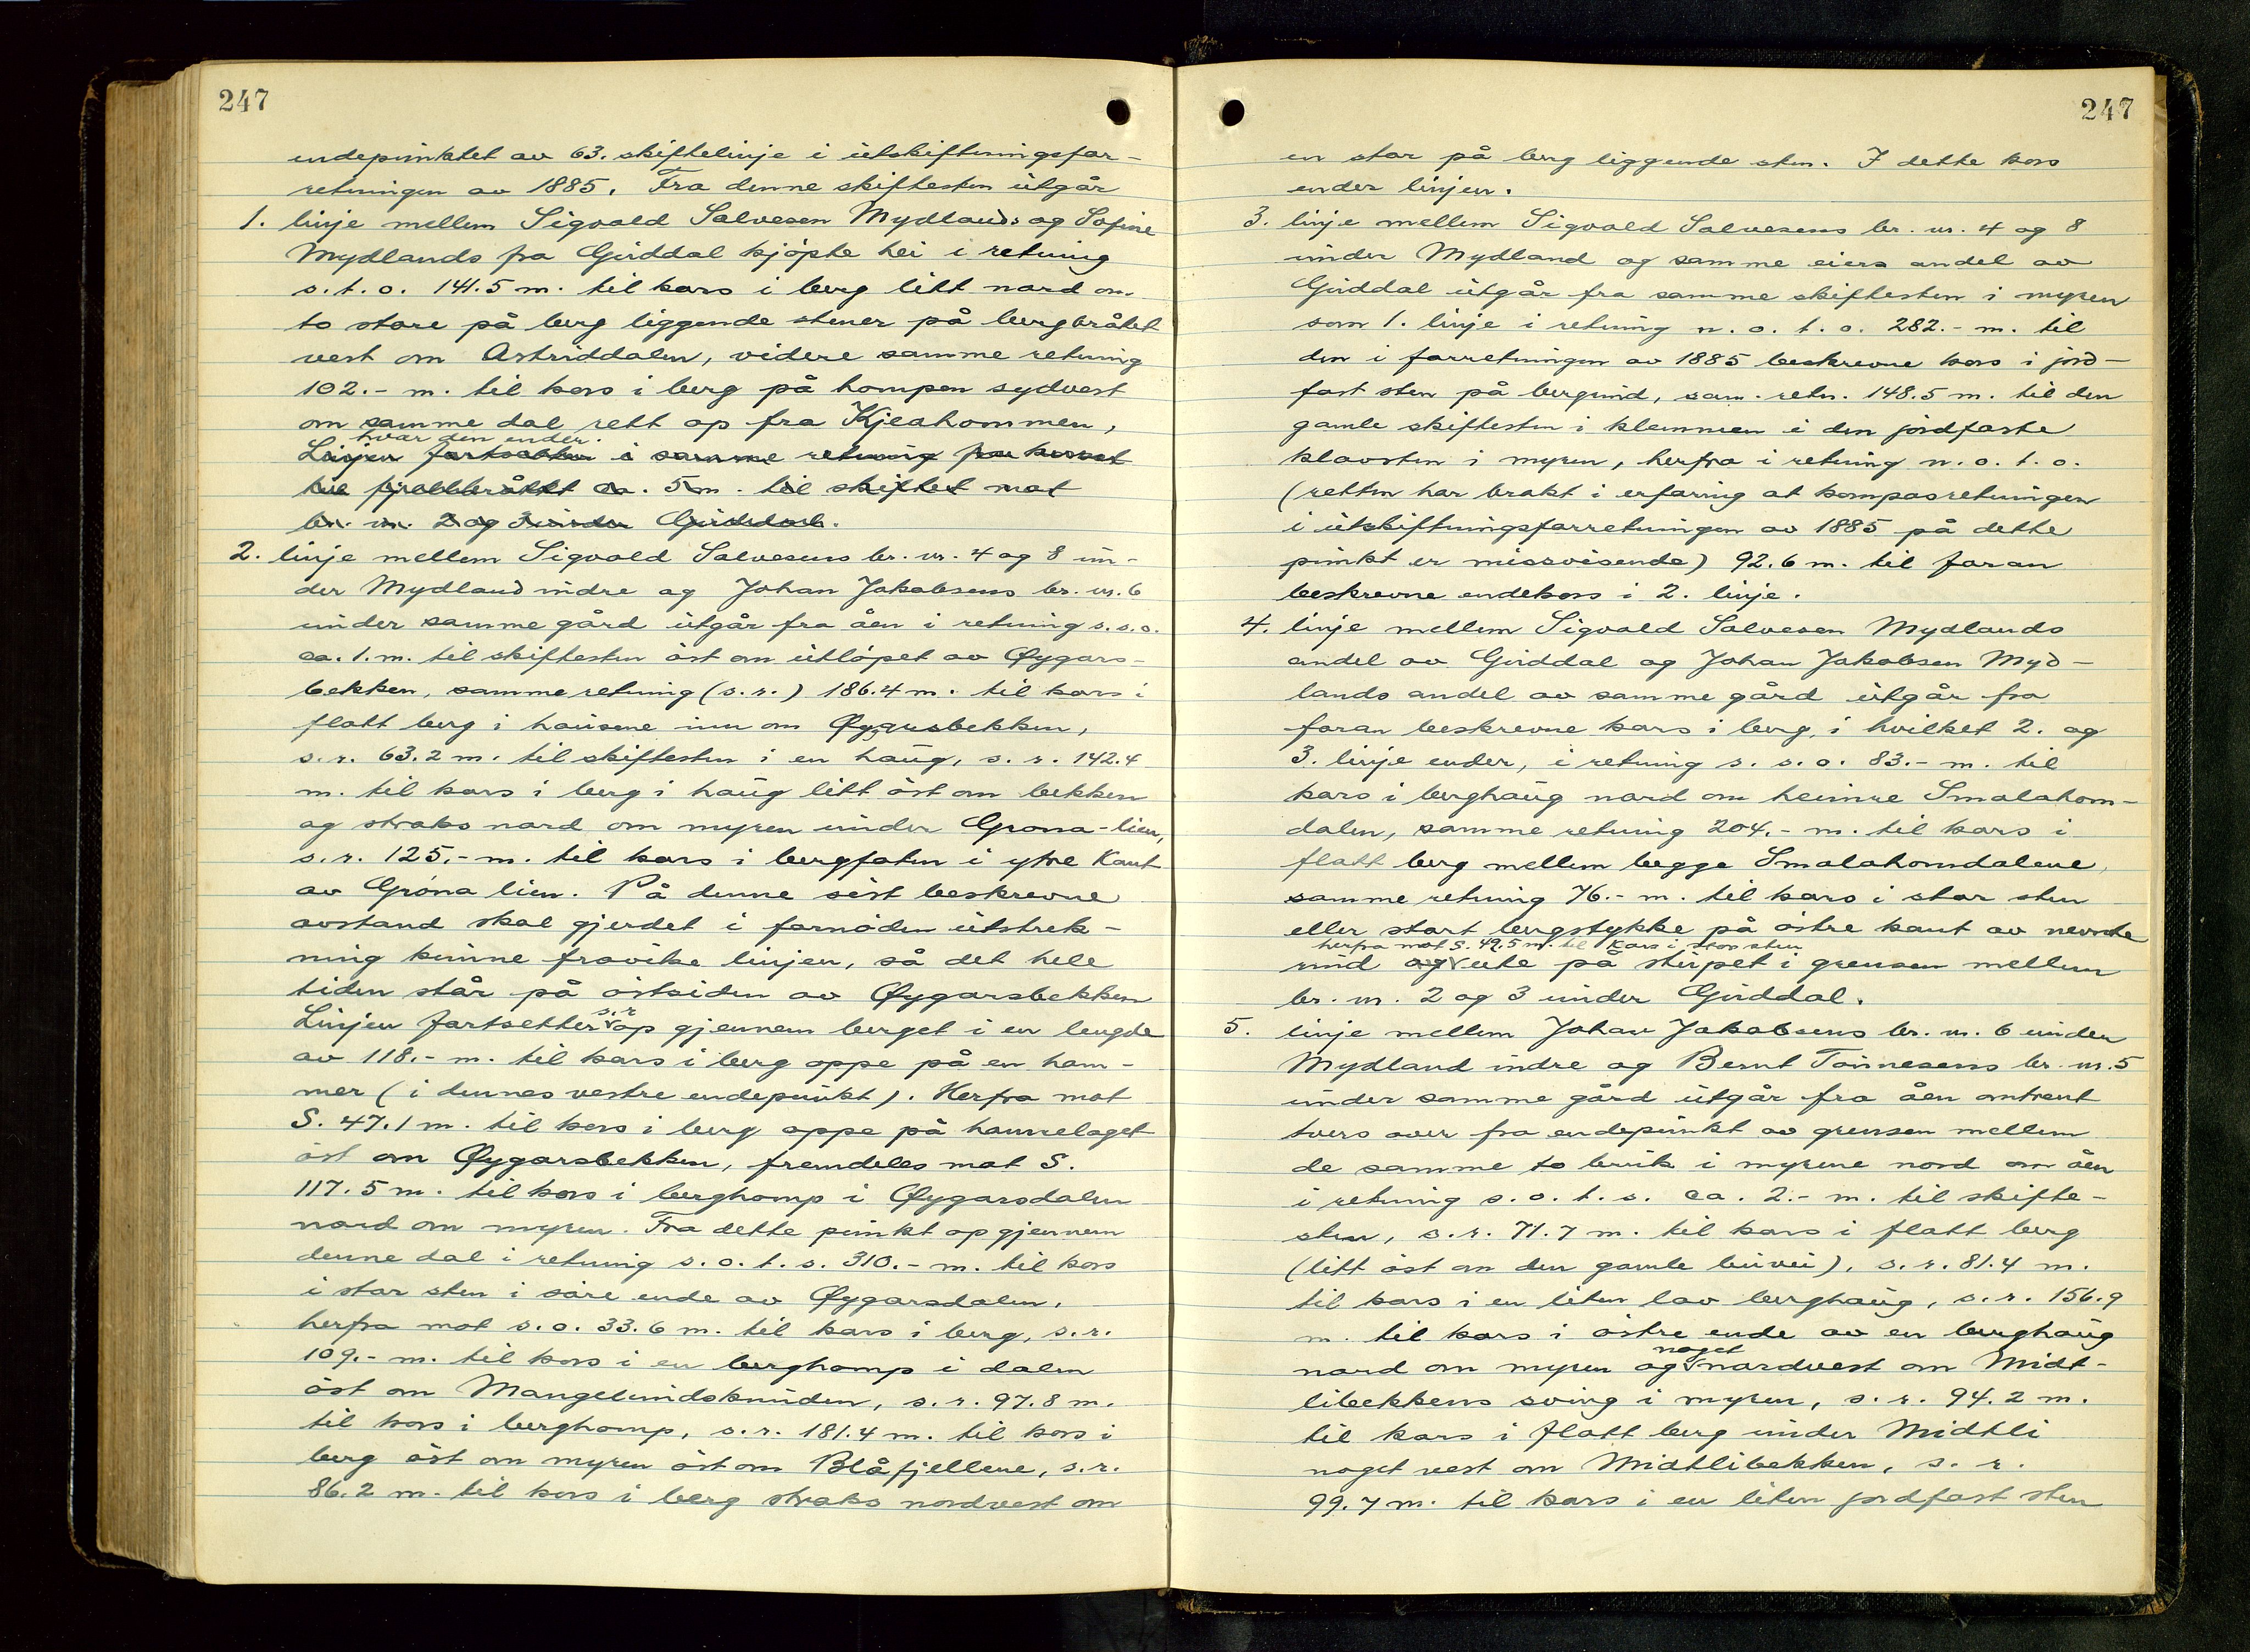 247
endepunktet av 63. skiftelinje i utskiftningsfor-
retningen av 1885. Fra denne skiftesten utgår
1. linje mellem Sigvald Salvesen Mydlands og Sofine
Mydlands fra Guddal kjøpte hei i retning
s.t.o. 141.5 m. til kors i berg litt nord om
to store på berg liggende stener på bergbråtet
vest om Astriddalen, videre samme retning
102.- m. til kors i berg på hompen sydvest
om samme dal rett op fra Kjeahommen,
hvor den ender.
Linjen fortsetter i samme retning fra korset
til fjellbråtet ca. 5 m. til skiftet mot
br. nr. 2 og 3 under Guddal.
2. linje mellem Sigvald Salvesens br. nr. 4 og 8 un-
der Mydland indre og Johan Jakobsens br. nr. 6
under samme gård utgår fra åen i retning s.s.o.
ca. 1. m. til skiftesten øst om utløpet av Øygars-
bekken, samme retning (s.r.) 186.4 m. til kors i
flatt berg i hausene inn om Øygarsbekken,
s.r. 63.2 m. til skiftesten i en haug, s.r. 142.4
m. til kors i berg i haug litt øst om bekken
og straks nord om myren under Grøna-lien,
s.r. 125.- m. til kors i bergfoten i ytre kant
av Grøna lien. På denne sist beskrevne
avstand skal gjerdet i fornøden utstrek-
ning kunne fravike linjen, så det hele
tiden står på østsiden av Øygarsbekken
s.r
Linjen fortsetter op gjennem berget i en lengde
av 118.- m. til kors i berg oppe på en ham-
mer (i dennes vestre endepunkt). Herfra mot
S. 47.1 m. til kors i berg oppe på hamrelaget
øst om Øygarsbekken, fremdeles mot S.
117.5 m. til kors i berghomp i Øygarsdalen
nord om myren. Fra dette punkt op gjennem
denne dal i retning s.o.t.s. 310.- m. til kors
i stor sten i søre ende av Øygarsdalen,
herfra mot s.o. 33.6 m. til kors i berg, s.r.
109.- m. til kors i en berghomp i dalen
øst om Mangelundsknuden, s.r. 97.8 m.
til kors i berghomp, s.r. 181.4 m. til kors i
berg øst om myren øst om Blåfjellene, s.r.
86.2 m. til kors i berg straks nordvest om
247
en stor på berg liggende sten. I dette kors
ender linjen.
3. linje mellem Sigvald Salvesens br. nr. 4 og 8
under Mydland og samme eiers andel av
Guddal utgår fra samme skiftesten i myren
som 1. linje i retning n.o.t.o. 282.- m. til
den i forretningen av 1885 beskrevne kors i jord-
fast sten på bergrind, sam. retn. 148.5 m. til den
gamle skiftesten i klemmen i den jordfaste
klovsten i myren, herfra i retning n.o.t.o.
(retten har brakt i erfaring at kompasretningen
i utskiftningsforretningen av 1885 på dette
punkt er missvisende) 92.6 m. til foran
beskrevne endekors i 2. linje.
4. linje mellem Sigvald Salvesen Mydlands
andel av Guddal og Johan Jakobsen Myd-
lands andel av samme gård utgår fra
foran beskrevne kors i berg, i hvilket 2. og
3. linje ender, i retning s.s.o. 83.- m. til
kors i berghaug nord om heimre Smalahom-
dalen, samme retning 204.- m. til kors i
flatt berg mellem begge Smalahomdalene,
samme retning 76.- m. til kors i stor sten
eller stort bergstykke på østre kant av nevnte
herfra mot S. 49.5 m. til kors i stor sten
rind og ute på stupet i grensen mellem
br. nr. 2 og 3 under Guddal.
5. linje mellem Johan Jakobsens br. nr. 6 under
Mydland indre og Bernt Tønnesens br. nr. 5
under samme gård utgår fra åen omtrent
tvers over fra endepunkt av grensen mellem
de samme to bruk i myrene nord om åen
i retning s.o.t.s. ca. 2.- m. til skifte-
sten, s.r. 71.7 m. til kors i flatt berg
(litt øst om den gamle buvei), s.r. 81.4 m.
til kors i en liten lav berghaug, s.r. 156.9
m. til kors i østre ende av en berghaug
noget
nord om myren og nordvest om Midt-
libekkens sving i myren, s.r. 94.2 m.
til kors i flatt berg under Midtli
noget vest om Midtlibekken, s.r.
99.7 m. til kors i en liten jordfast sten